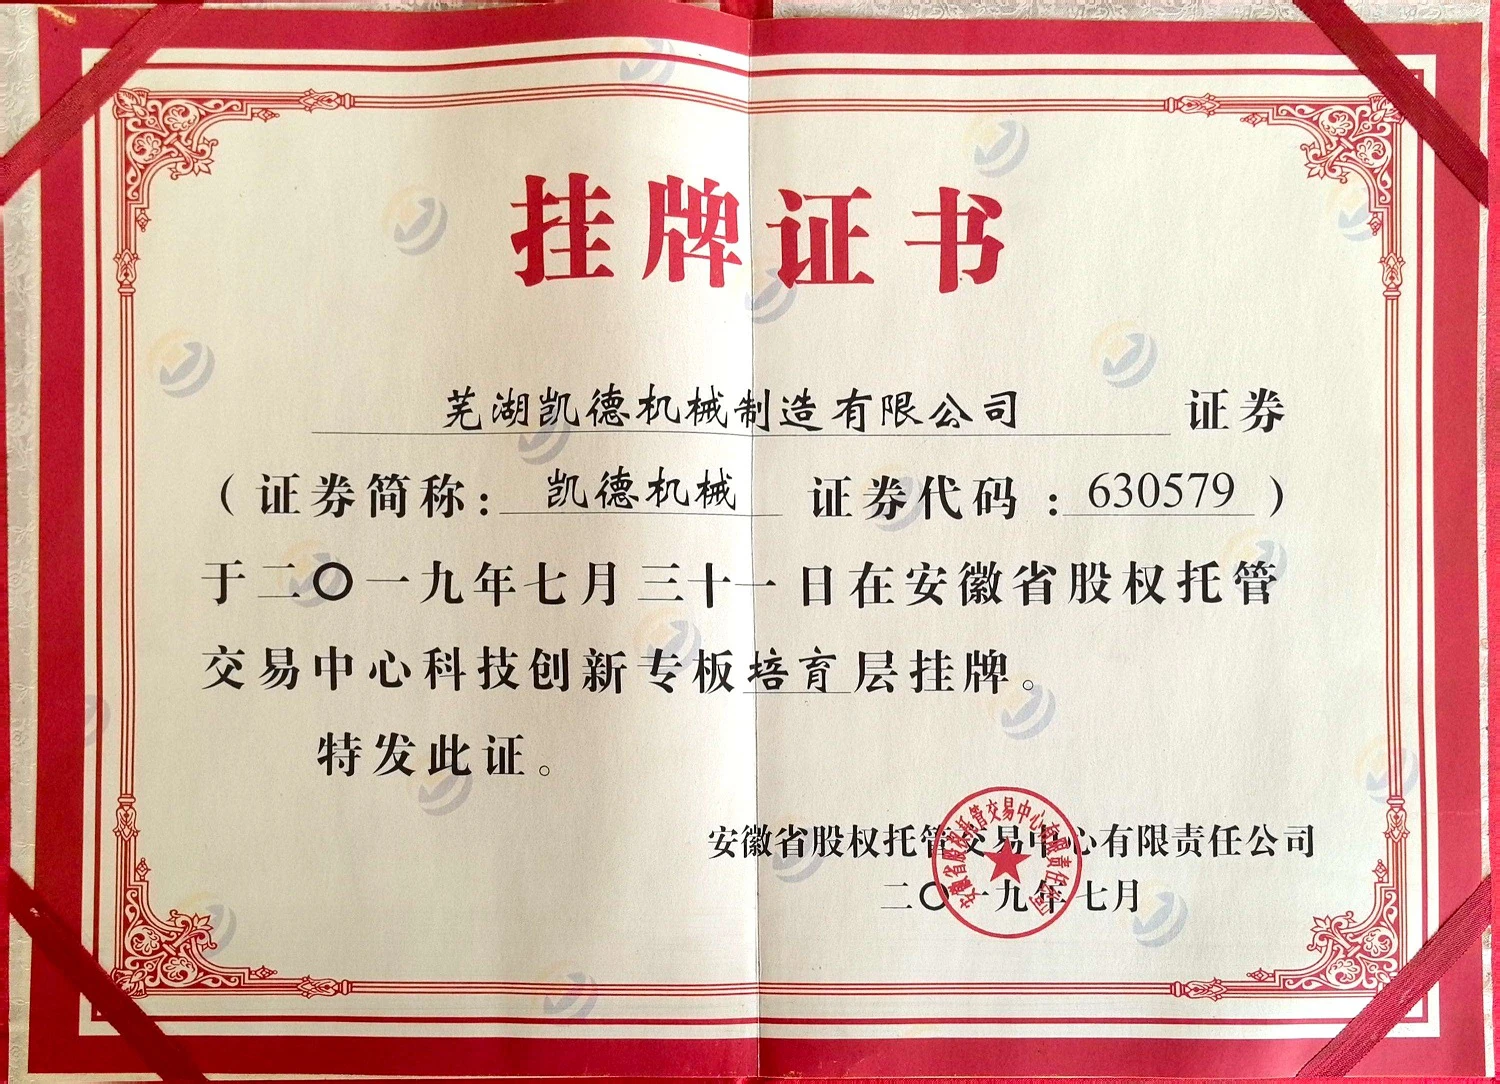 挂牌证书
芜湖凯德机械制造有限公司 证券
（证券简称：凯德机械 证券代码：630579）
于二〇一九年七月三十一日在安徽省股权托管
交易中心科技创新专板培育层挂牌。
特发此证。
安徽省股权托管交易中心有限责任公司
二〇一九年七月
安徽省股权托管交易中心有限责任公司